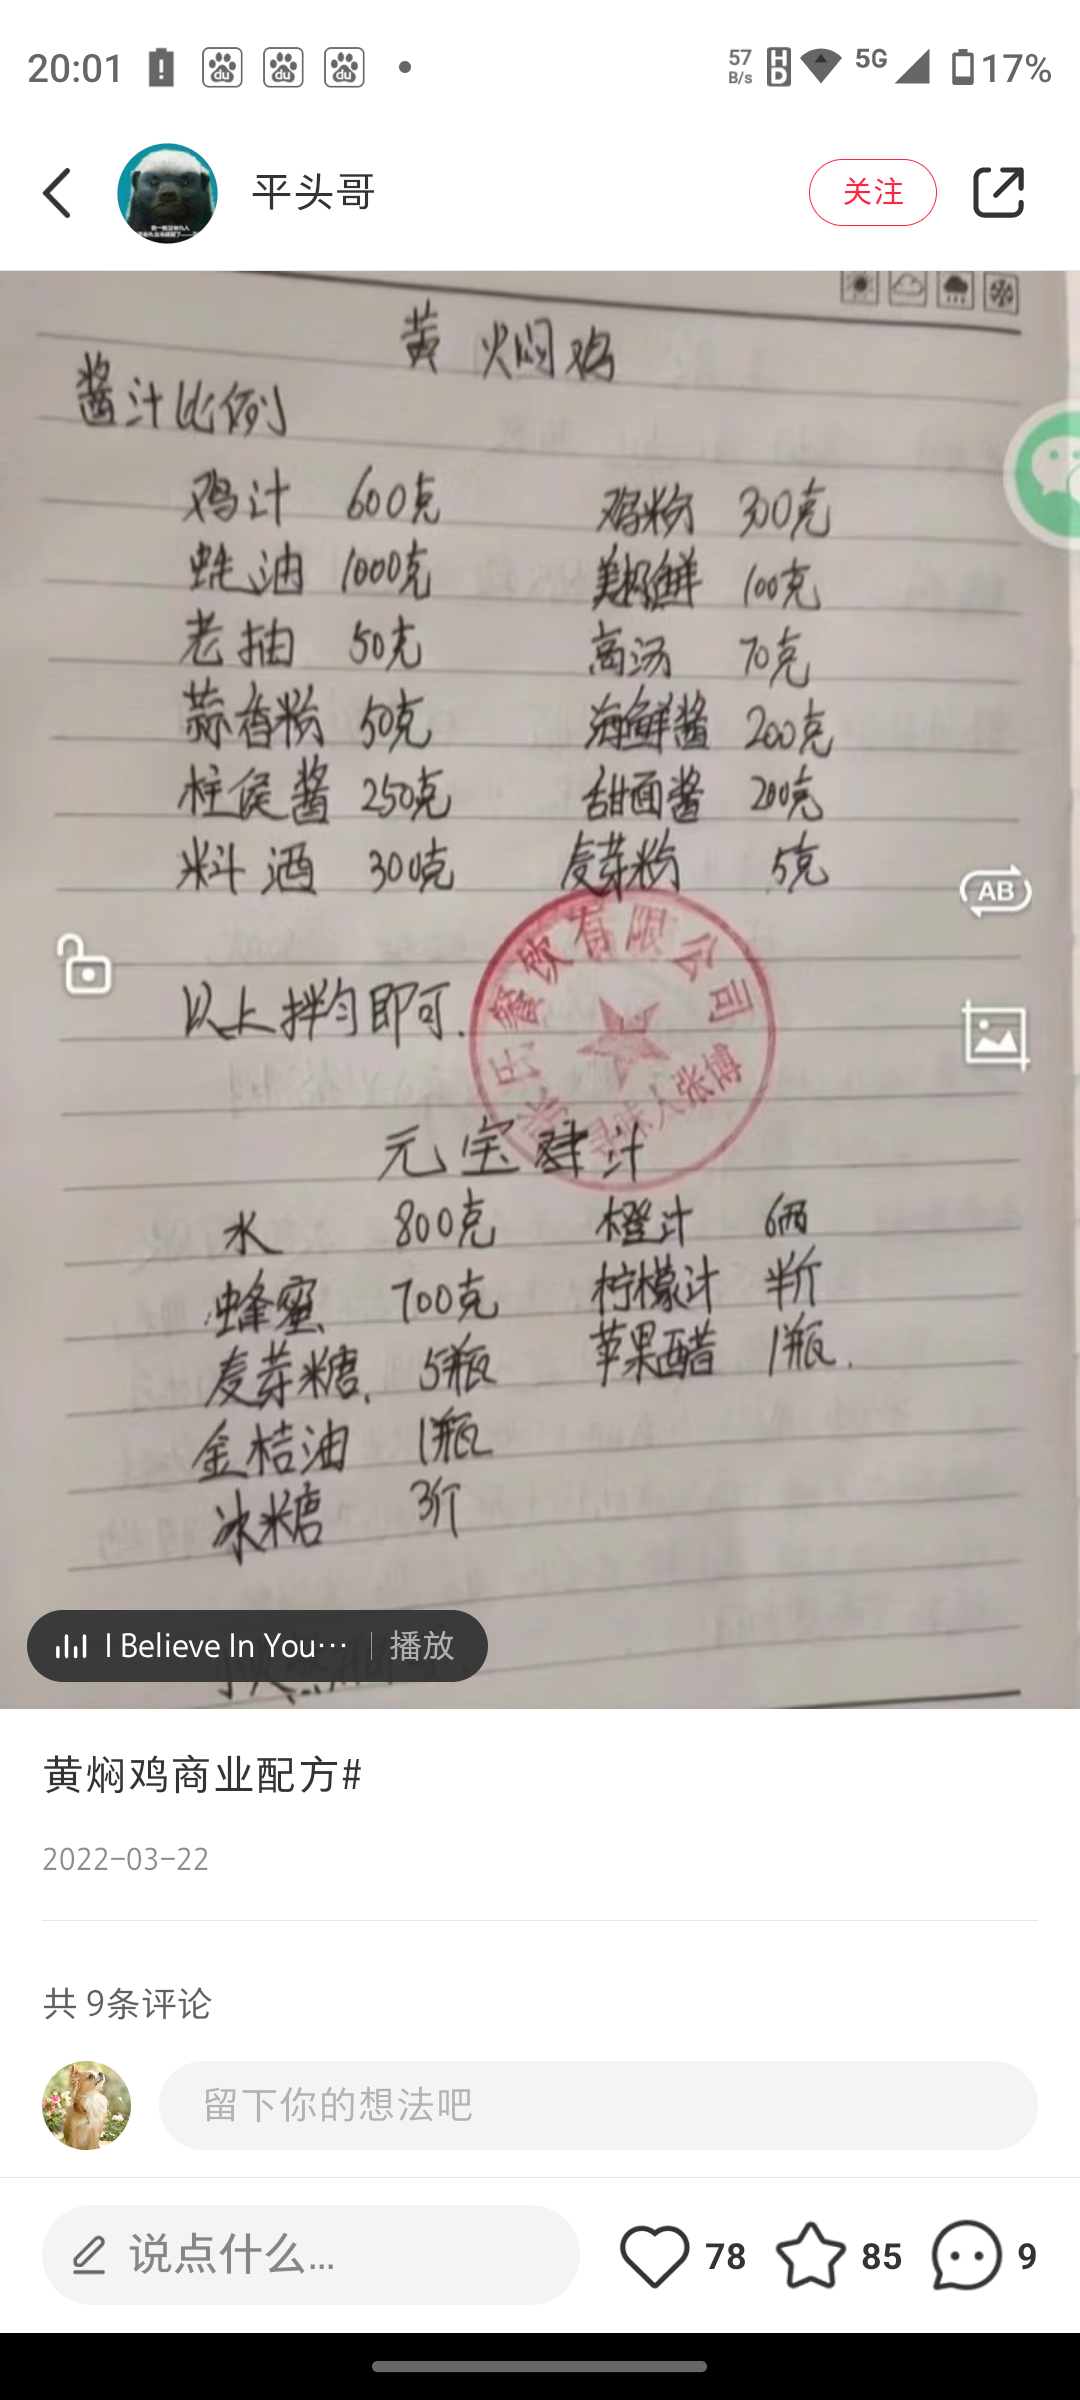 20:01 57 B/s HD 5G 17%
平头哥 关注
黄焖鸡
酱汁比例
鸡汁 600克 鸡粉 300克
蚝油 1000克 美极鲜 100克
老抽 50克 高汤 70克
蒜香粉 50克 海鲜酱 200克
柱侯酱 250克 甜面酱 200克
料酒 300克 麦芽粉 5克
AB
餐饮有限公司
以上拌匀即可.
张博
元宝 汁
水 800克 橙汁 6两
蜂蜜 700克 柠檬汁 半斤
麦芽糖. 5瓶 苹果醋 1瓶.
金桔油 1瓶
冰糖 3斤
I Believe In You… 播放
黄焖鸡商业配方#
2022-03-22
共 9条评论
留下你的想法吧
说点什么... 78 85 9